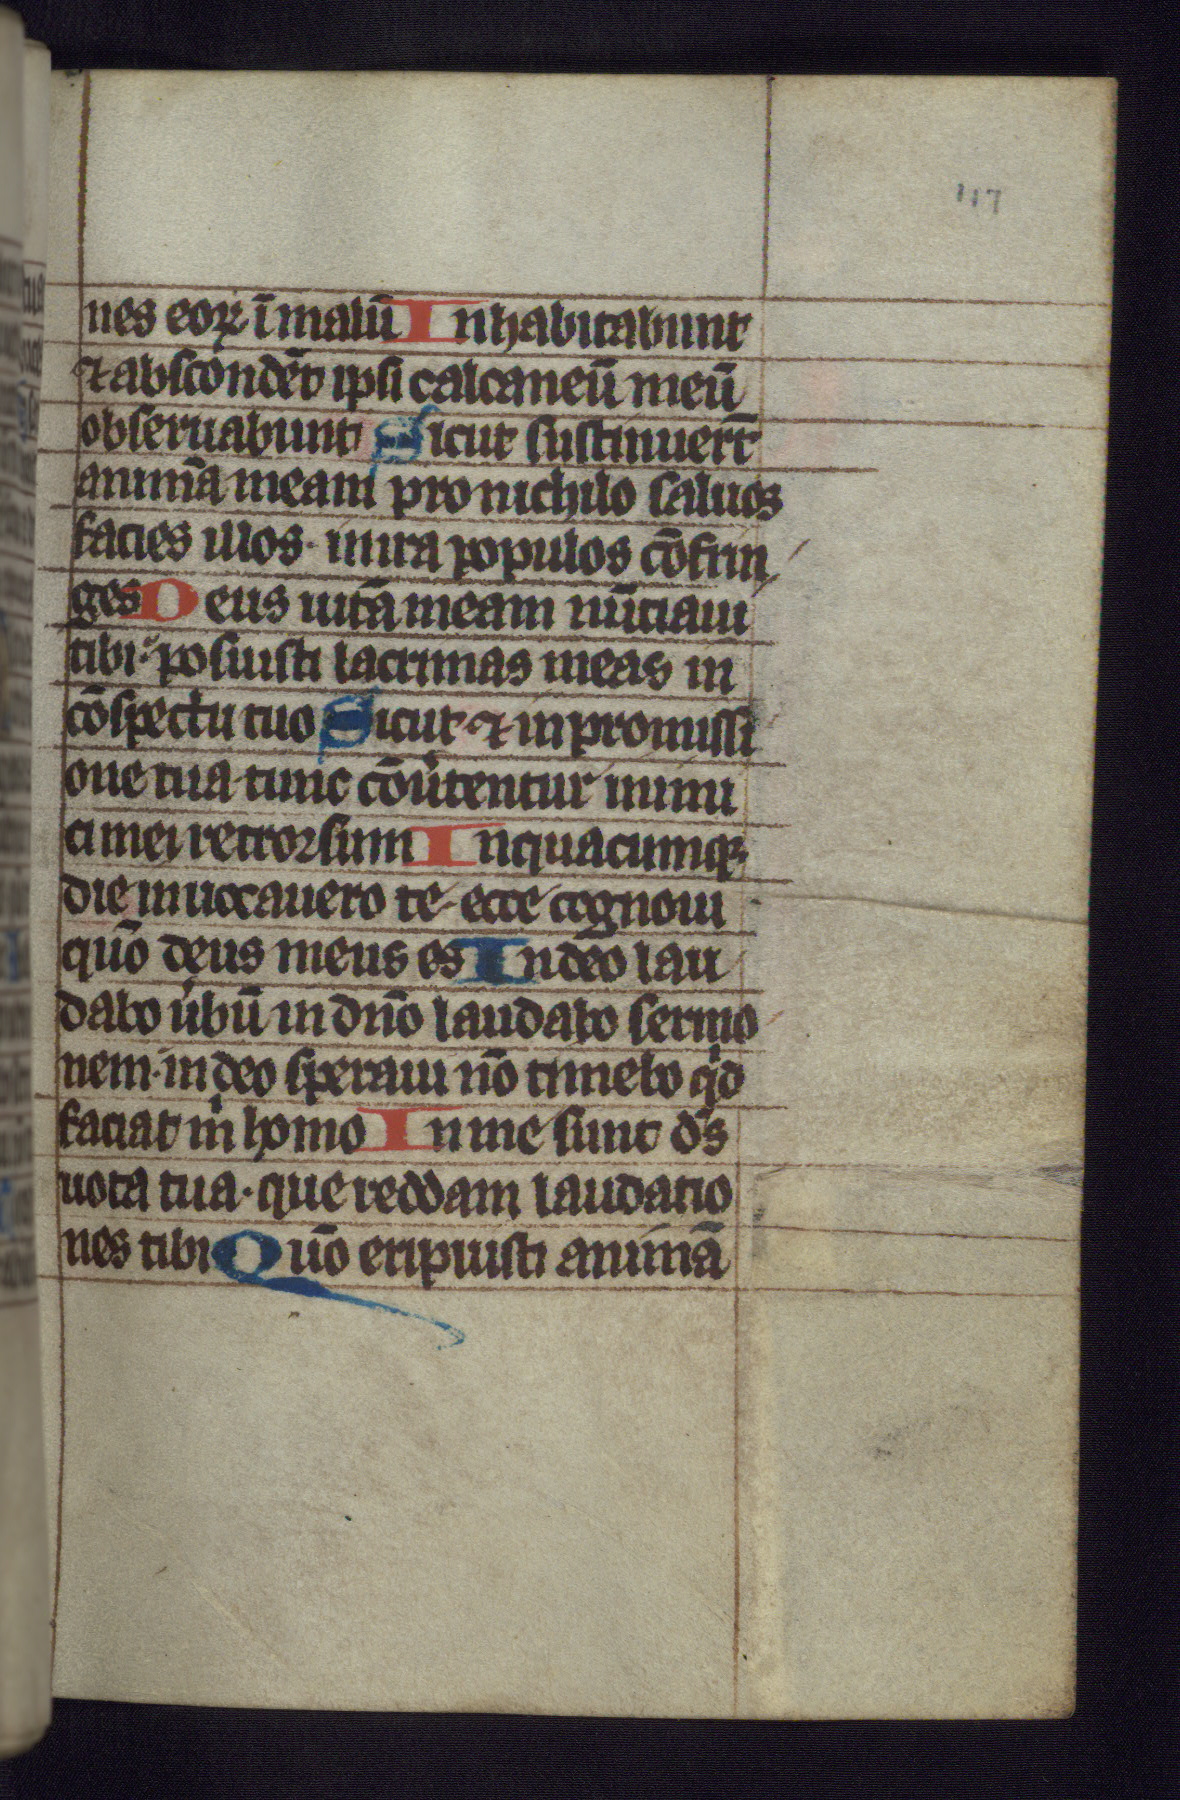 117
nes eoꝝ ī malū Inhabitabunt
⁊ abscondēt ipsi calcaneū meū
obseruabunt Sicut sustinuert̄
animā meam pro nichilo saluos
facies illos · in ira populos cōfrin
ges Deus uitā meam nūciaui
tibi · posuisti lacrimas meas in
cōspectu tuo Sicut ⁊ in promissi
one tua · tunc cōu͛tentur inimi
ci mei retrorsum In quacumqꝫ
die inuocauero te · ecce cognoui
quō deus meus es In deo lau
dabo u͛bū in dn̄o laudabo sermo
nem · in deo speraui nō timebo qͥd
faciat m̍ homo In me sunt ds̄
uota tua · que reddam laudatio
nes tibi Quō eripuisti animā